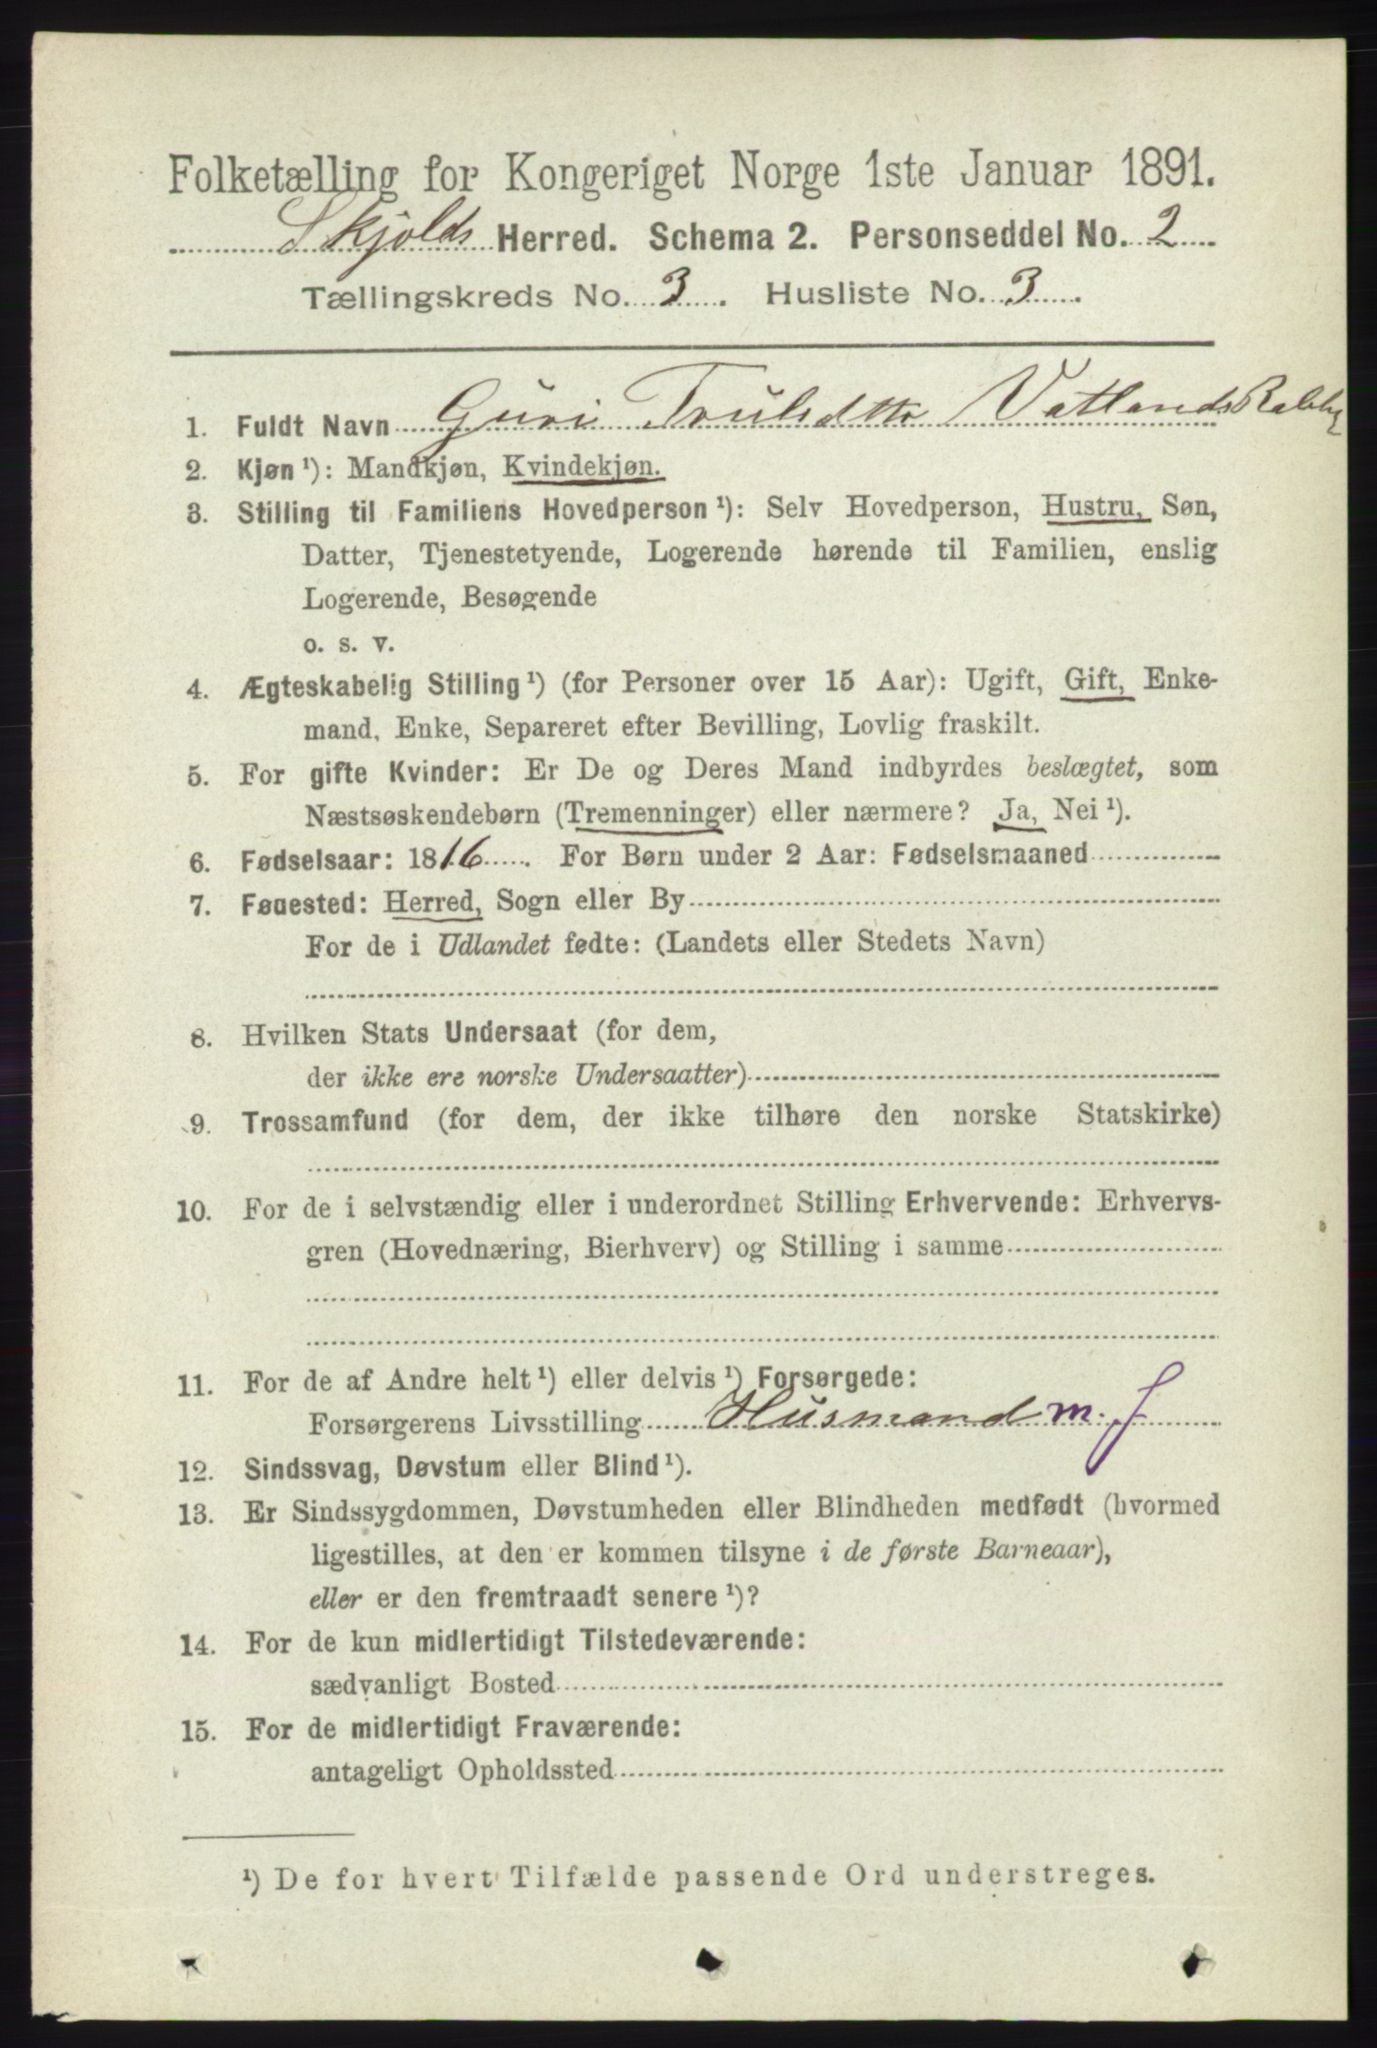 Folketælling for Kongeriget Norge 1ste Januar 1891.
Skjolds Herred. Schema 2. Personseddel No. 2
Tællingskreds No. 3. Husliste No. 3.
1. Fuldt Navn Guri Trulsdtr Vatlands
2. Kjøn ¹): Mandkjøn, Kvindekjøn.
3. Stilling til Familiens Hovedperson ¹): Selv Hovedperson, Hustru, Søn,
Datter, Tjenestetyende, Logerende hørende til Familien, enslig
Logerende, Besøgende
o. s. v.
4. Ægteskabelig Stilling ¹) (for Personer over 15 Aar): Ugift, Gift, Enke-
mand, Enke, Separeret efter Bevilling, Lovlig fraskilt.
5. For gifte Kvinder: Er De og Deres Mand indbyrdes beslægtet, som
Næstsøskendebørn (Tremenninger) eller nærmere? Ja, Nei ¹).
6. Fødselsaar: 1816. For Børn under 2 Aar: Fødselsmaaned
7. Fødested: Herred, Sogn eller By
For de i Udlandet fødte: (Landets eller Stedets Navn)
8. Hvilken Stats Undersaat (for dem,
der ikke ere norske Undersaatter)
9. Trossamfund (for dem, der ikke tilhøre den norske Statskirke)
10. For de i selvstændig eller i underordnet Stilling Erhvervende: Erhvervs-
gren (Hovednæring, Bierhverv) og Stilling i samme
11. For de af Andre helt ¹) eller delvis ¹) Forsørgede:
Forsørgerens Livsstilling Husmand m. J
12. Sindssvag, Døvstum eller Blind ¹).
13. Er Sindssygdommen, Døvstumheden eller Blindheden medfødt (hvormed
ligestilles, at den er kommen tilsyne i de første Barneaar),
eller er den fremtraadt senere ¹)?
14. For de kun midlertidigt Tilstedeværende:
sædvanligt Bosted
15. For de midlertidigt Fraværende:
antageligt Opholdssted
¹) De for hvert Tilfælde passende Ord understreges.